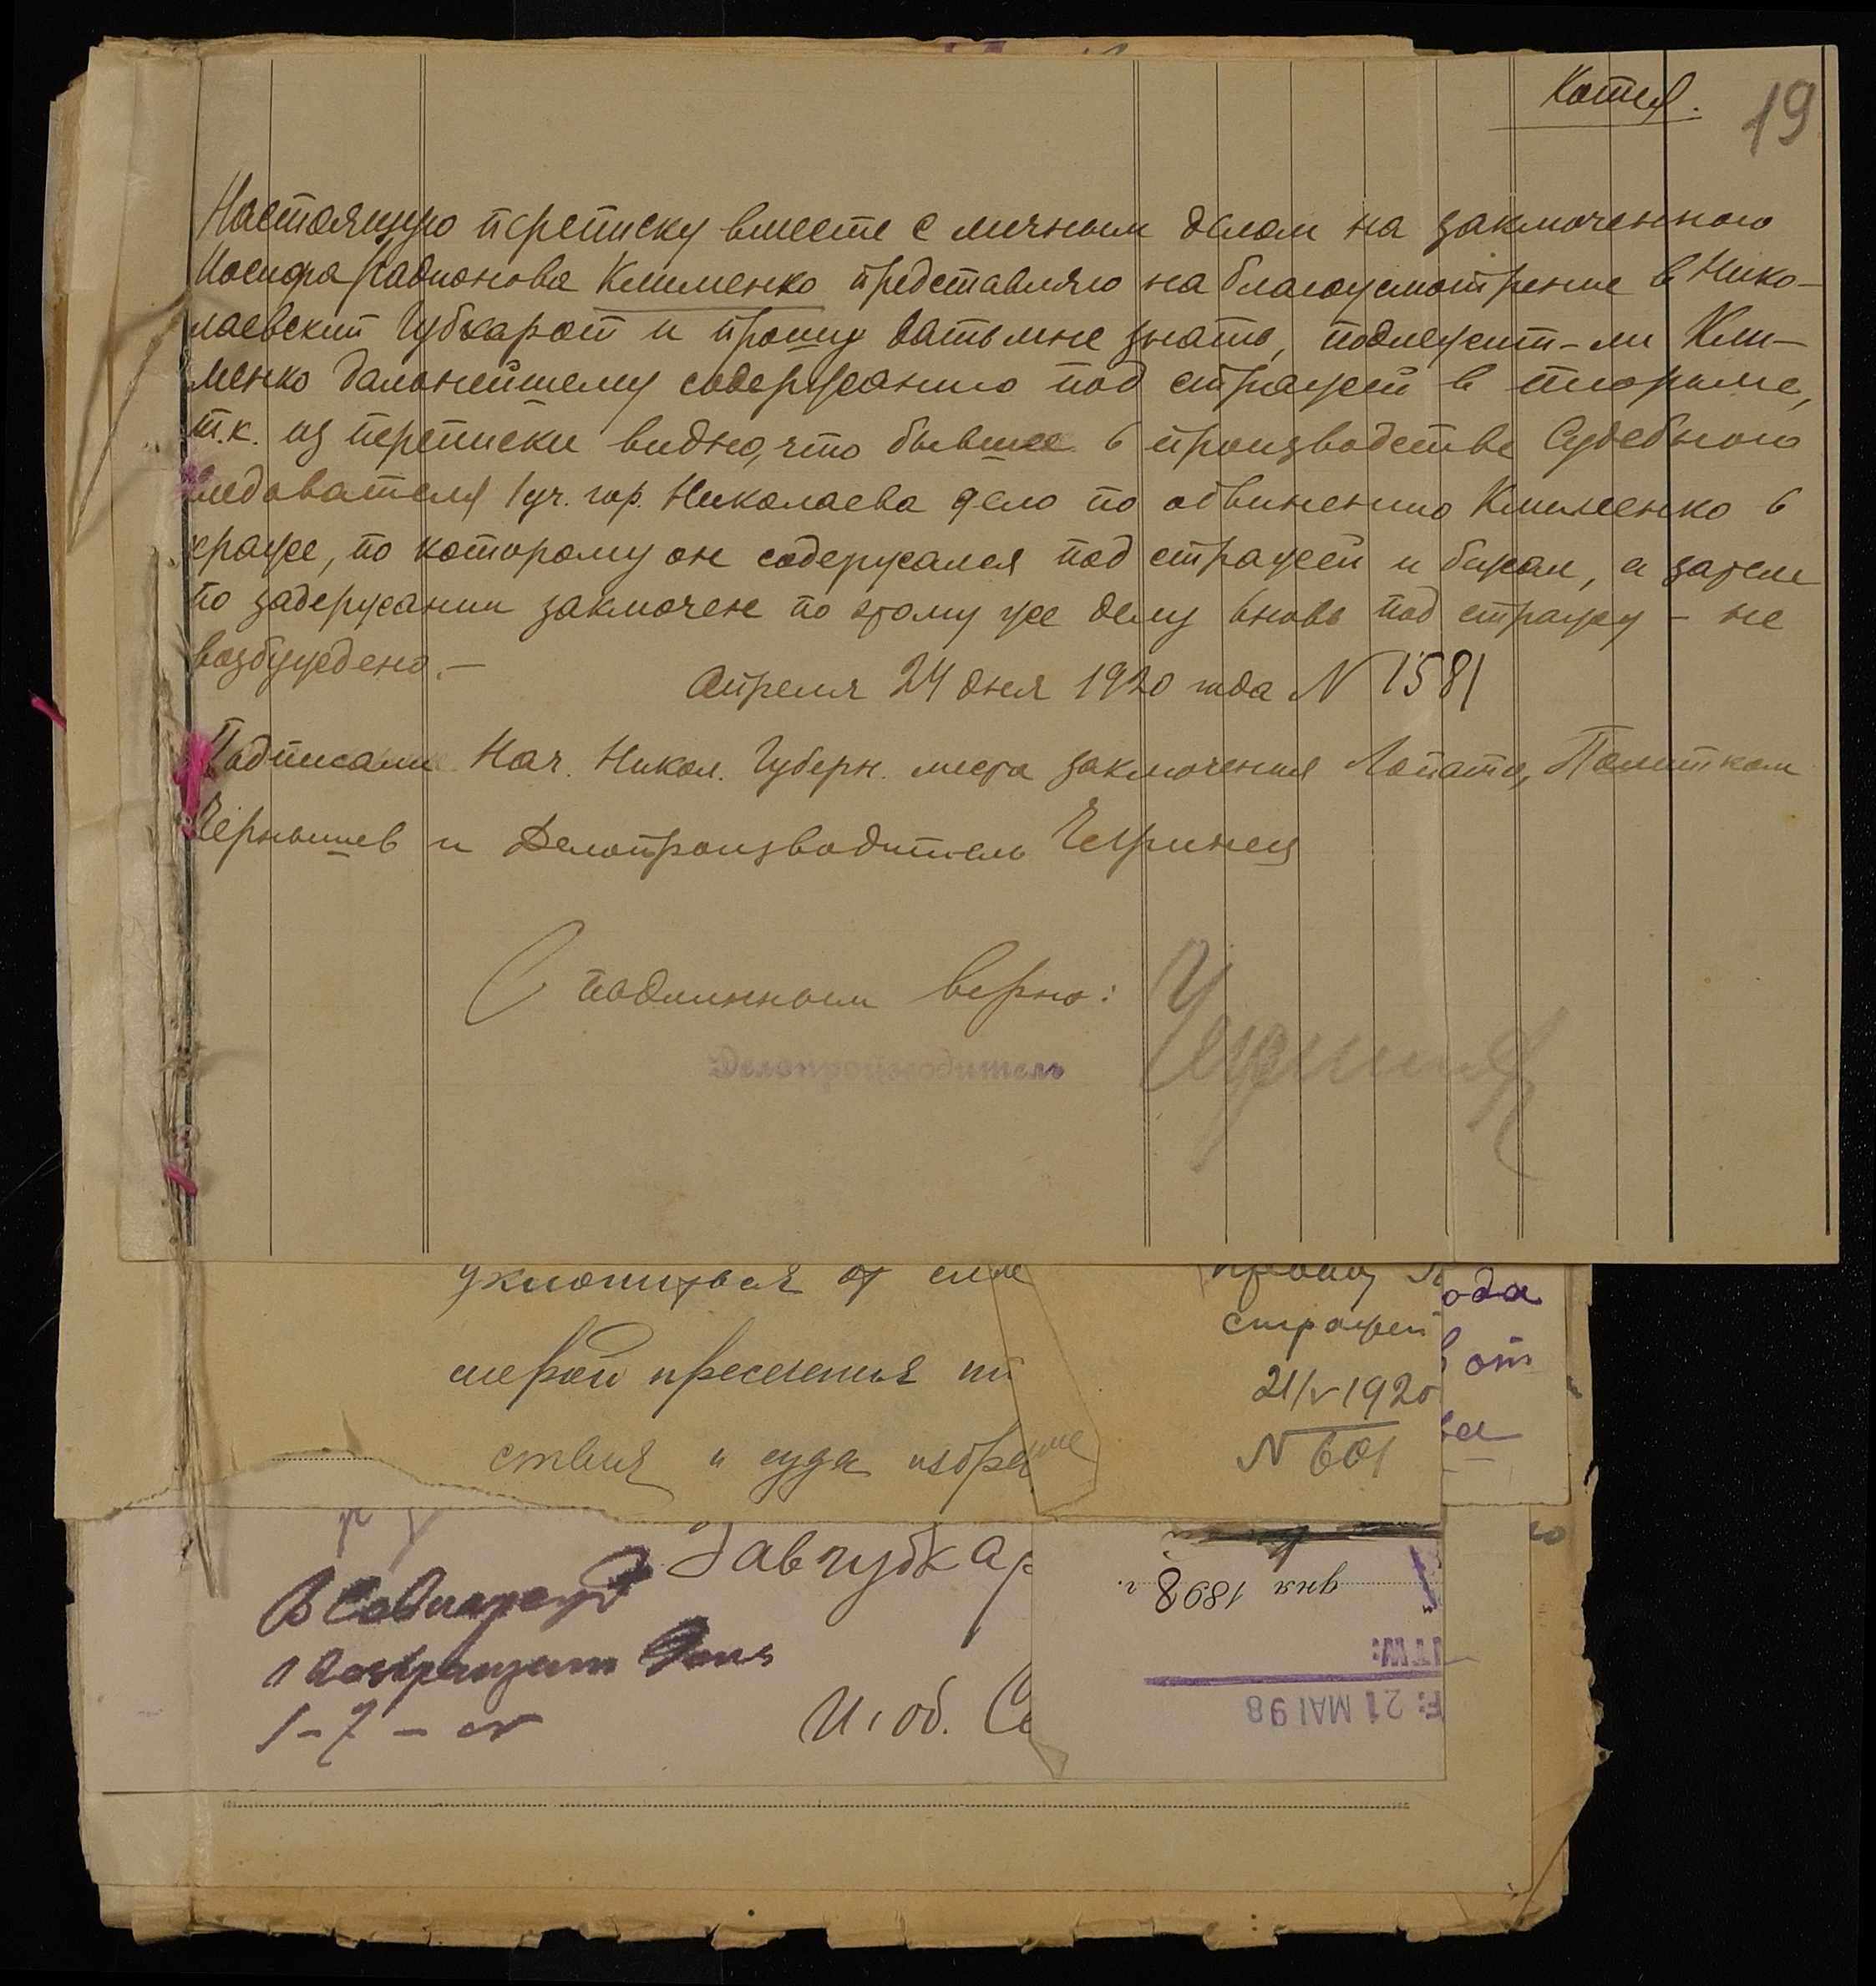 Копия.
19
Настоящую переписку вместе с личным делом на заключенного
Иосифа Радионова Клименко представляю на благоусмотрение в Нико-
лаевский Губкарот и прошу дать мне знать, подлежит-ли Кли-
менко дальнейшему содержанию под стражей в тюрьме,
т.к. из переписки видно, что бывшее в производстве Судебного
следователя 1 уч. гор. Николаева дело по обвинению Клименко в
краже, по которому он содержался под стражей и бежал, а затем
по задержании заключен по этому же делу вновь под стражу – не
возбуждено.–
Апреля 24 дня 1920 года N 1581
Подписали Нач. Никол. Губерн. места заключения Лопата, Политком
Чернышев и Делопроизводитель
С подлинным верно:
Делопроизводитель
уклониться от
мерой пресечения
ствия и суда избра
стражей
21/V 1920
N 601
ода
от
ва
Завгубкар
1-7-
И. об. Се
дня 1898 г.
ITW:
F: 21 MAI 98